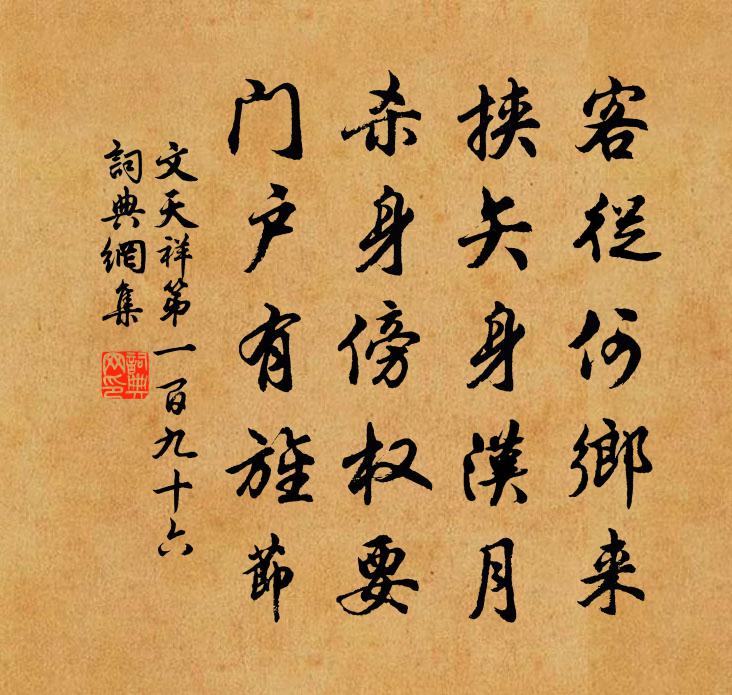 客從何鄉来
挾矢身漢月
杀身傍权要
门户有旌節
文天祥第一百九十六
詞典網集
詞典网印